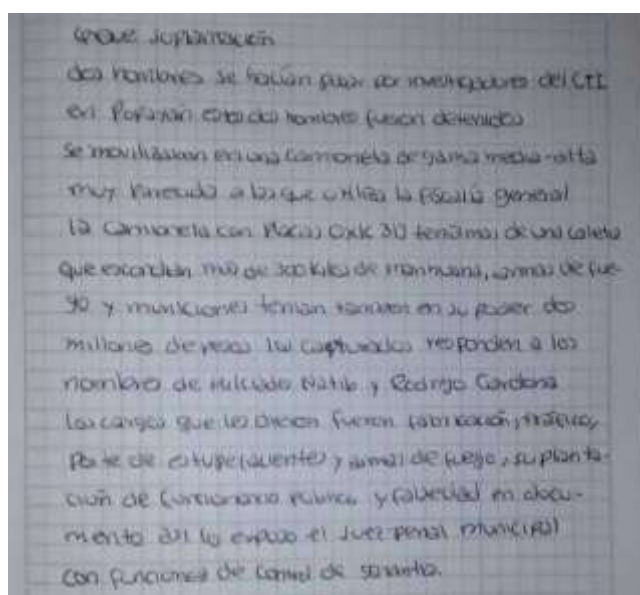 grave suplantación
dos hombres se hacían pasar por investigadores del CTI
en Popayán estos dos hombres fueron detenidos
se movilizaban en una camioneta de gama media-alta
muy parecida a las que utiliza la fiscalía general
la camioneta con placas 313 tenía mas de una caleta
que escondían mas de 300 kilos de marihuana, armas de fue-
go y municiones tenían también en su poder dos
millones de pesos los capturados responden a los
nombres de Natib y Rodrigo Cardona
los cargos que les dieron fueron fabricación, tráfico,
porte de estupefacientes y armas de fuego, suplanta-
ción de funcionario publico y falsedad en docu-
mento así lo expuso el Juez penal municipal
con funciones de control de garantía.